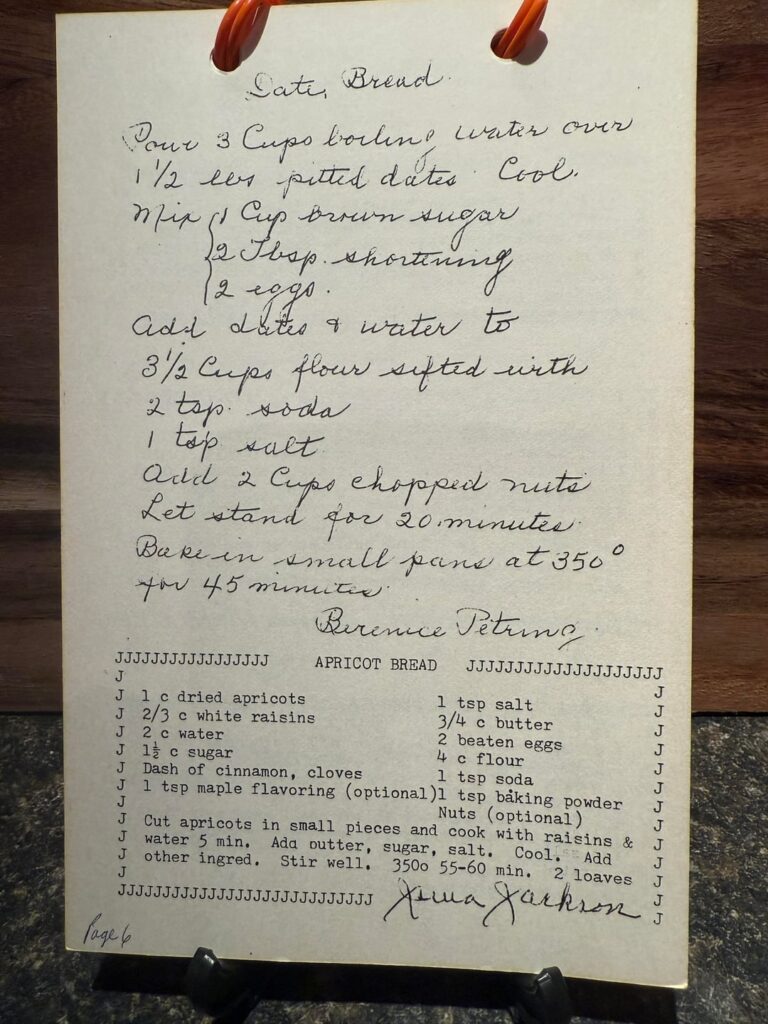 Date Bread
Pour 3 Cups boiling water over
1 1/2 lbs pitted dates Cool.
Mix { 1 Cup brown sugar
2 Tbsp. shortening
2 eggs.
Add dates & water to
3 1/2 Cups flour sifted with
2 tsp. soda
1 tsp salt
Add 2 Cups chopped nuts
Let stand for 20 minutes
Bake in small pans at 350°
for 45 minutes
Berenice Petring
JJJJJJJJJJJJJJJJJ APRICOT BREAD JJJJJJJJJJJJJJJJJJJJ
J J
J 1 c dried apricots 1 tsp salt J
J 2/3 c white raisins 3/4 c butter J
J 2 c water 2 beaten eggs J
J 1½ c sugar 4 c flour J
J Dash of cinnamon, cloves 1 tsp soda J
J 1 tsp maple flavoring (optional) 1 tsp baking powder J
J Nuts (optional) J
J Cut apricots in small pieces and cook with raisins & J
J water 5 min. Add butter, sugar, salt. Cool. Add J
J other ingred. Stir well. 350o 55-60 min. 2 loaves J
J J
JJJJJJJJJJJJJJJJJJJJJJJJJJJJ Jackson J
Page 6